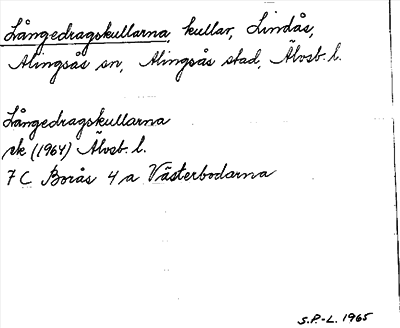 Långedragskullarna, kullar, Lindås,
Alingsås sn, Alingsås stad, Älvsb. l.
Långedragskullarna
ek (1964) Älvsb. l.
7 C Borås 4 a Västerbodarna
S.P.-L. 1965